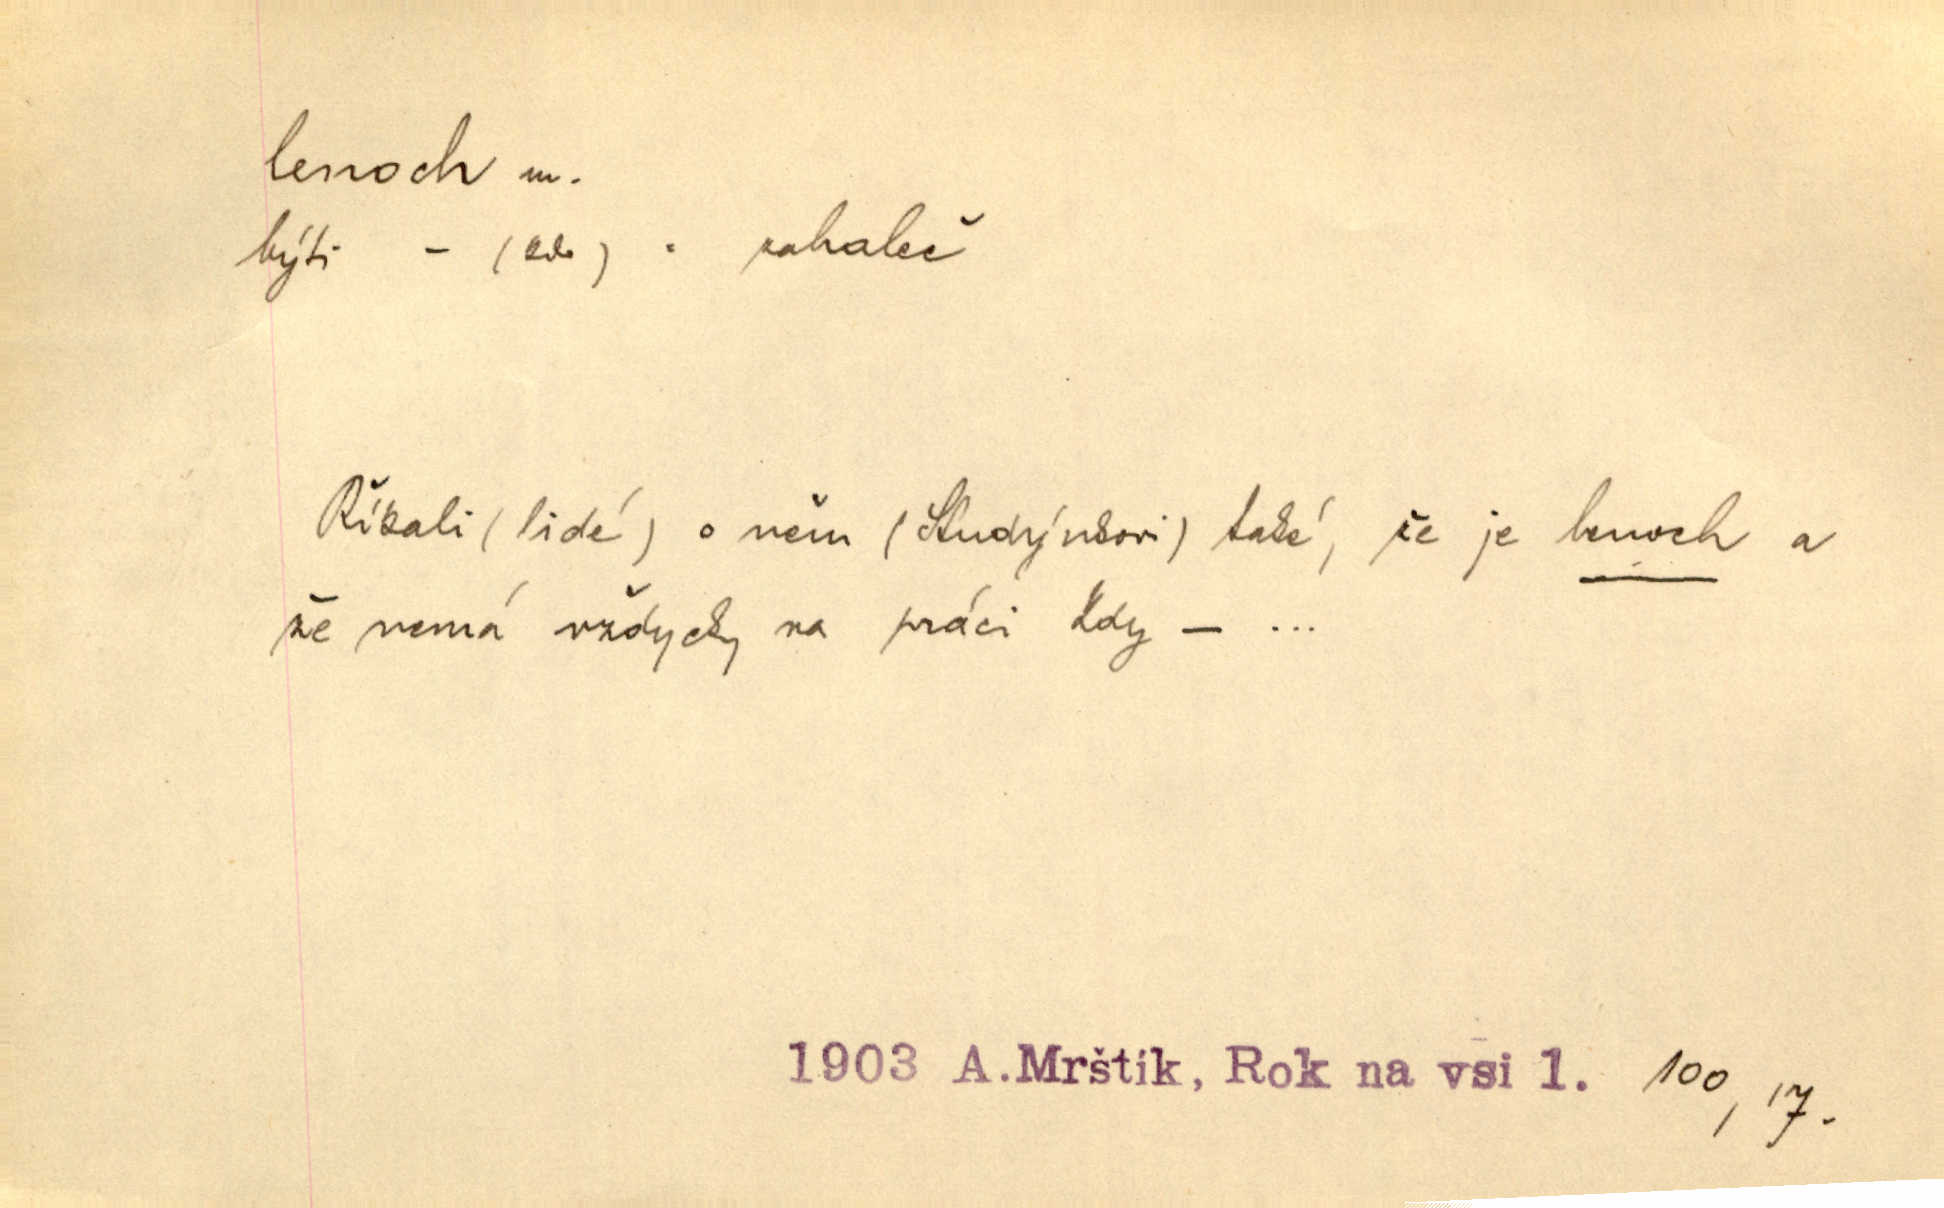 lenoch m.
býti – (kdo) : zahaleč
Říkali (lidé) o něm (Studýnkovi) také, že je lenoch a
že nemá vždycky na práci kdy – ...
1903 A.Mrštík, Rok na vsi 1. 100, 17.